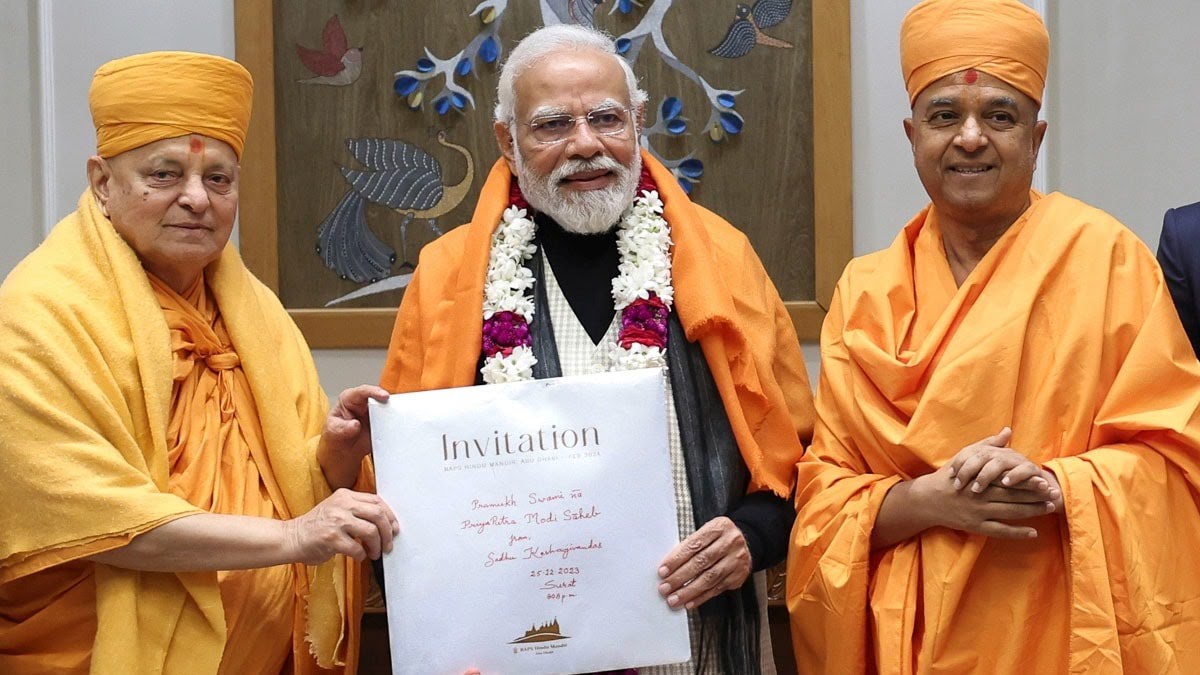 Invitation
BAPS HINDU MANDIR, ABU DHABI - FEB 2024
Pramukh Swami na
Priya Putra Modi Saheb
from,
Sadhu
25.12.2023
Surat
BAPS Hindu Mandir
Abu Dhabi